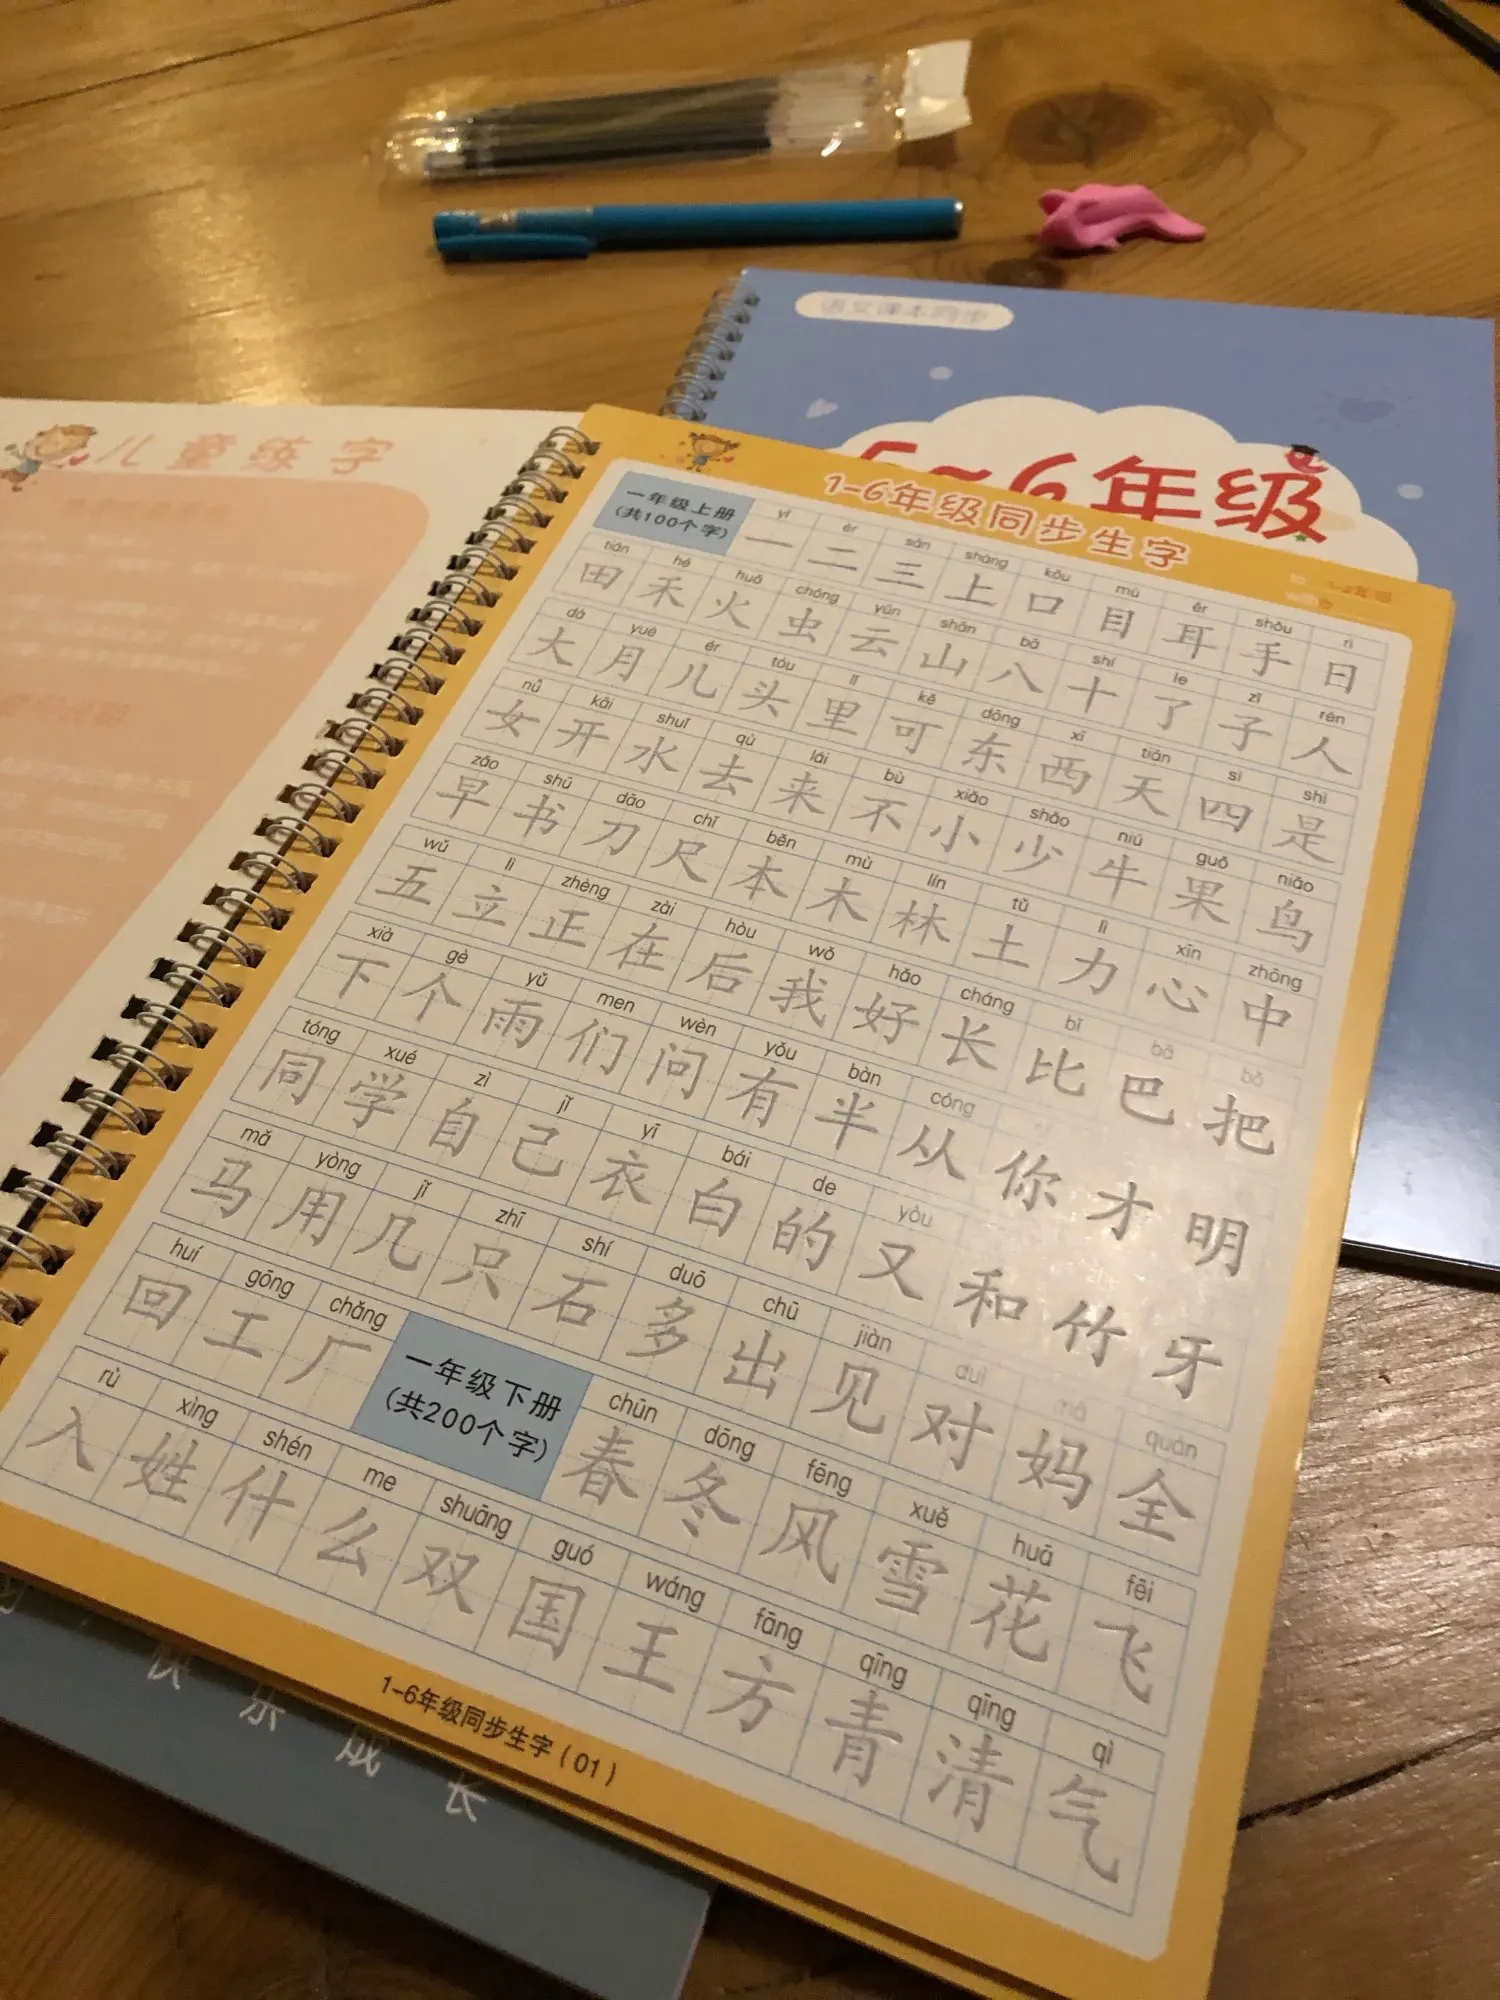 语文课本同步
5~6年级
儿童练字
1-6年级同步生字
一年级上册
(共100个字)
yī èr sān shàng kǒu mù ěr shǒu rì
一 二 三 上 口 目 耳 手 日
tián hé huǒ chóng yún shān bā shí le zǐ rén
田 禾 火 虫 云 山 八 十 了 子 人
dà yuè ér tóu lǐ kě dōng xī tiān sì shì
大 月 儿 头 里 可 东 西 天 四 是
nǚ kāi shuǐ qù lái bù xiǎo shǎo niú guǒ niǎo
女 开 水 去 来 不 小 少 牛 果 鸟
zǎo shū dāo chǐ běn mù lín tǔ lì xīn zhōng
早 书 刀 尺 本 木 林 土 力 心 中
wǔ lì zhèng zài hòu wǒ hǎo cháng bǐ bā bǎ
五 立 正 在 后 我 好 长 比 巴 把
xià gè yǔ men wèn yǒu bàn cóng
下 个 雨 们 问 有 半 从 你 才 明
tóng xué zì jǐ yī bái de yòu
同 学 自 己 衣 白 的 又 和 竹 牙
mǎ yòng jǐ zhī shí duō chū jiàn duì mā quán
马 用 几 只 石 多 出 见 对 妈 全
huí gōng chǎng
回 工 厂
一年级下册
(共200个字)
chūn dōng fēng xuě huā fēi
春 冬 风 雪 花 飞
rù xìng shén me shuāng guó wáng fāng qīng qīng qì
入 姓 什 么 双 国 王 方 青 清 气
1-6年级同步生字(01)
快乐成长